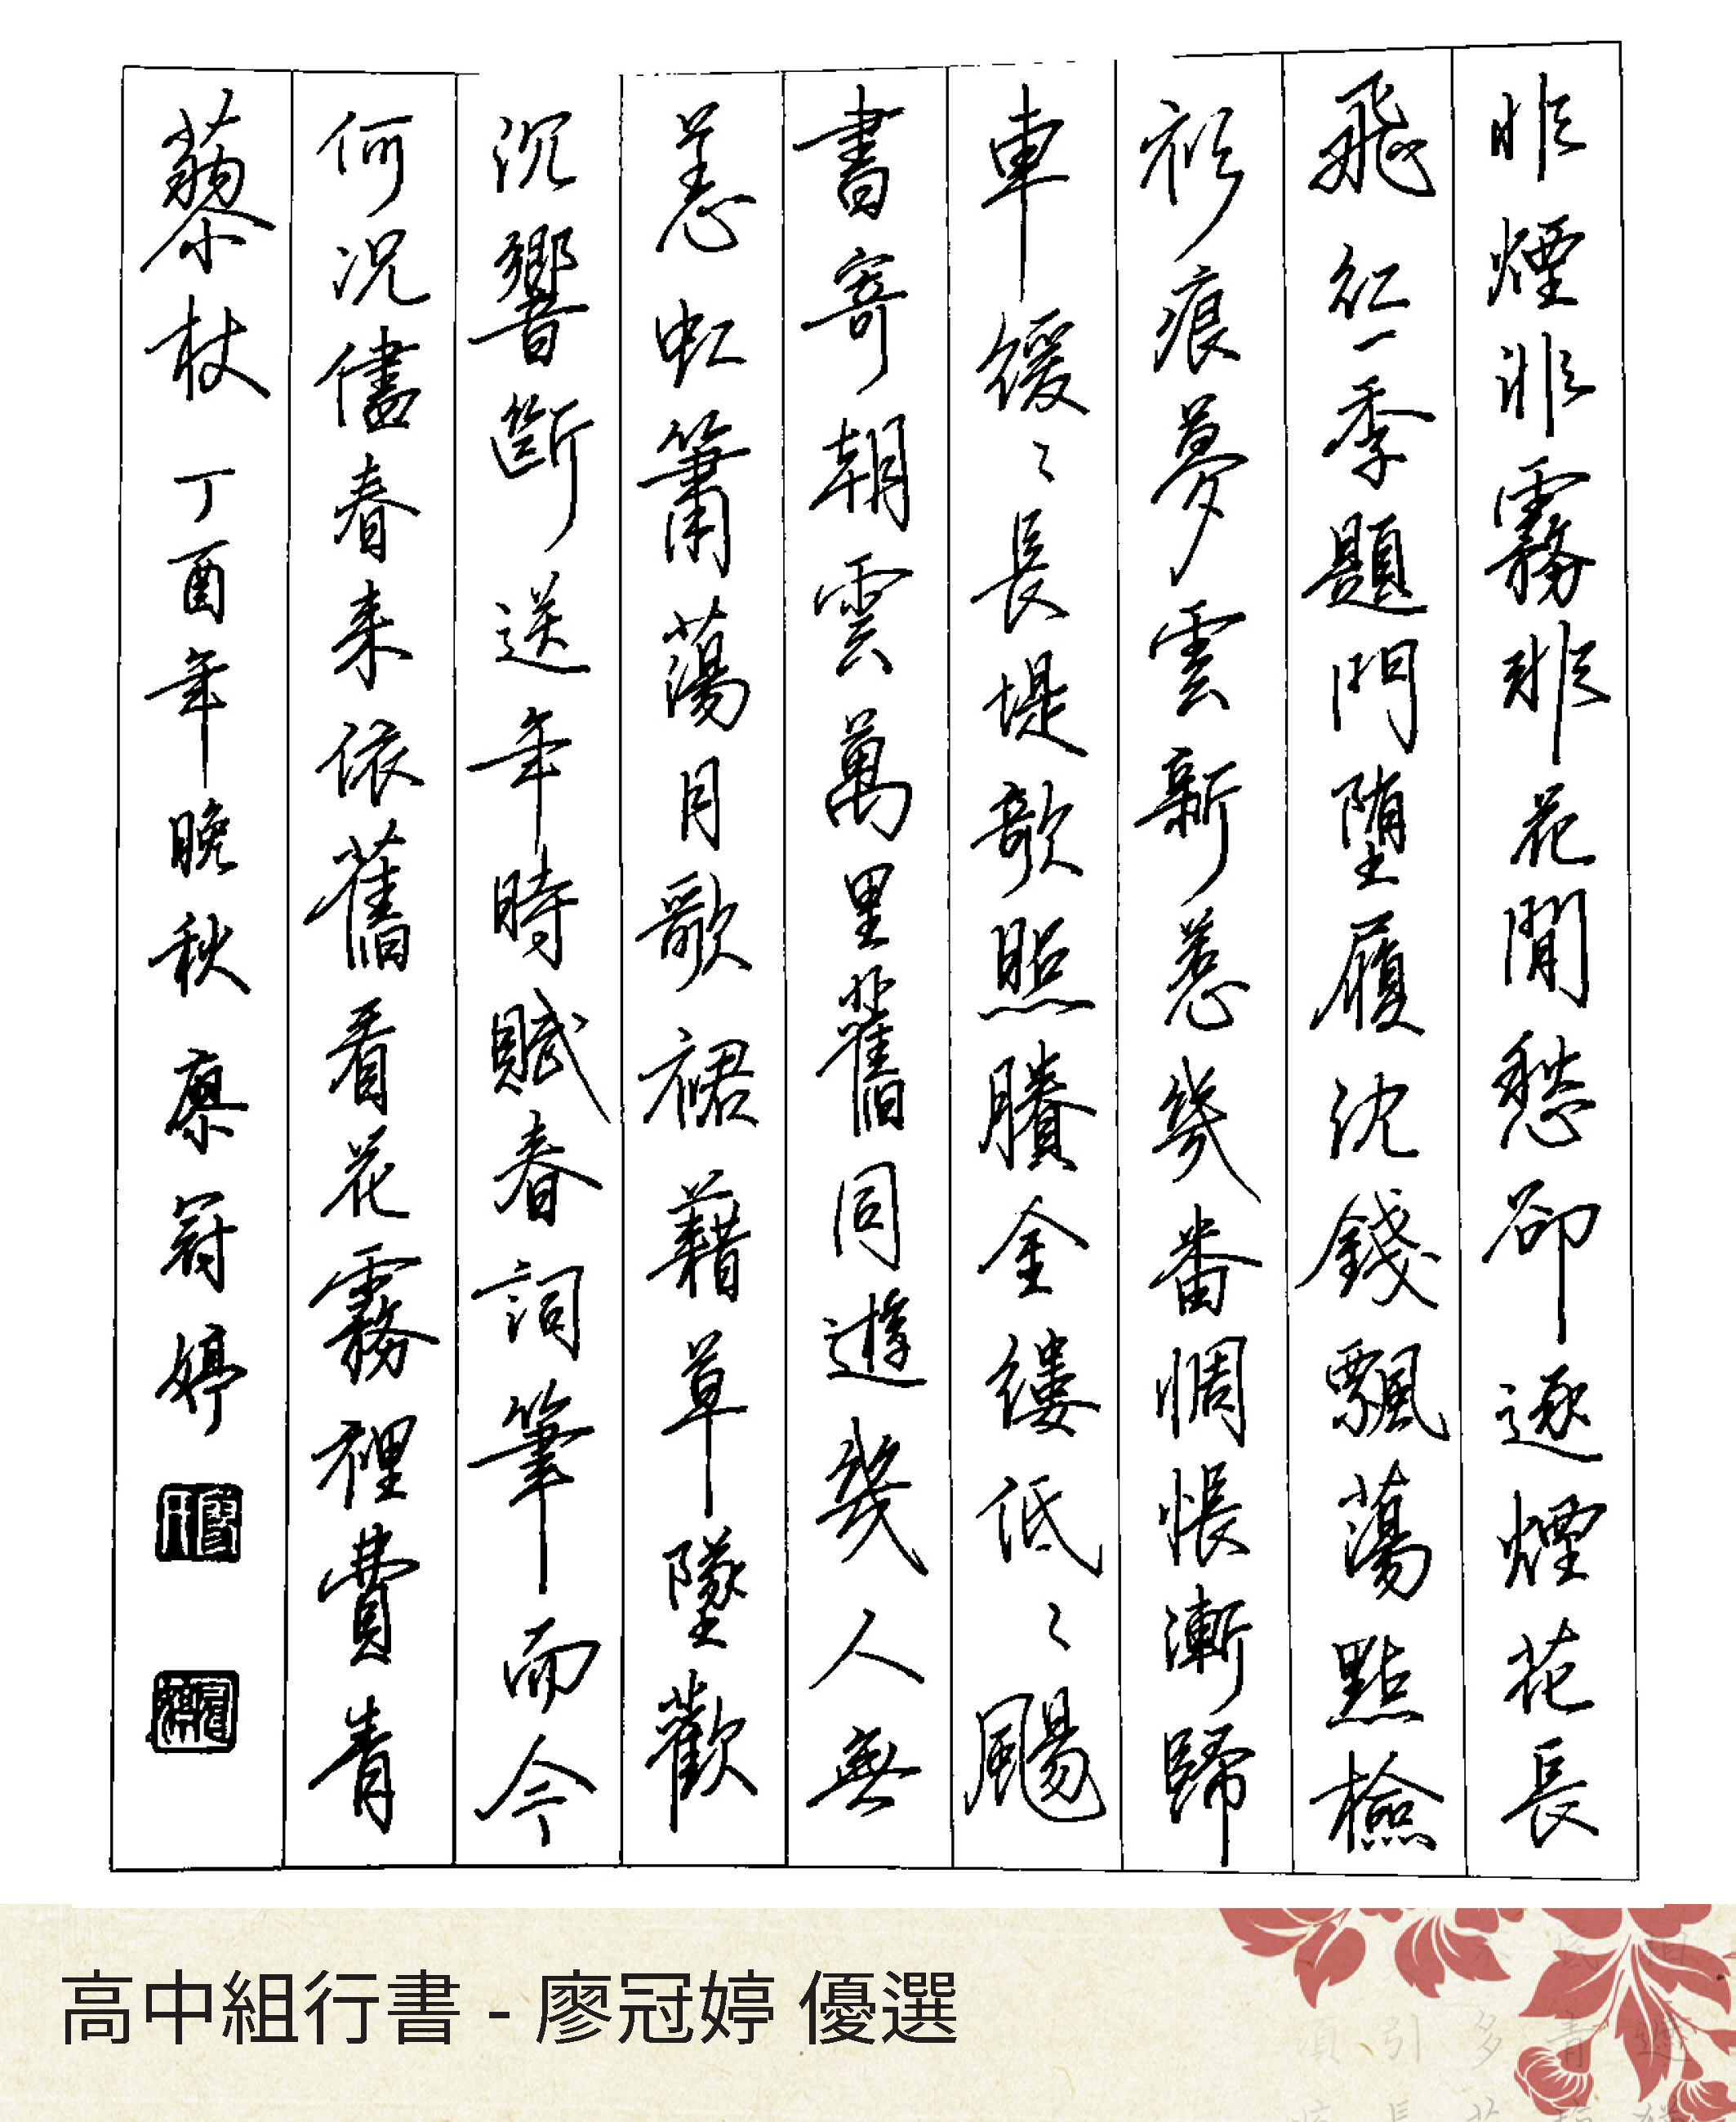 非煙非霧非花間愁卻逐煙花長
飛紅一季題門墮履沈錢飄蕩點檢
衫痕夢雲新惹幾番惆悵漸歸
車緩〻長堤歌照賸金縷低〻颺
書寄朝雲萬里舊同遊幾人無
恙虹簫蕩月歌裙藉草墜歡
沉響斷送年時賦春詞筆而今
何況儘春來依舊看花霧裡費青
藜杖 丁酉年晚秋廖冠婷
高中組行書 - 廖冠婷 優選